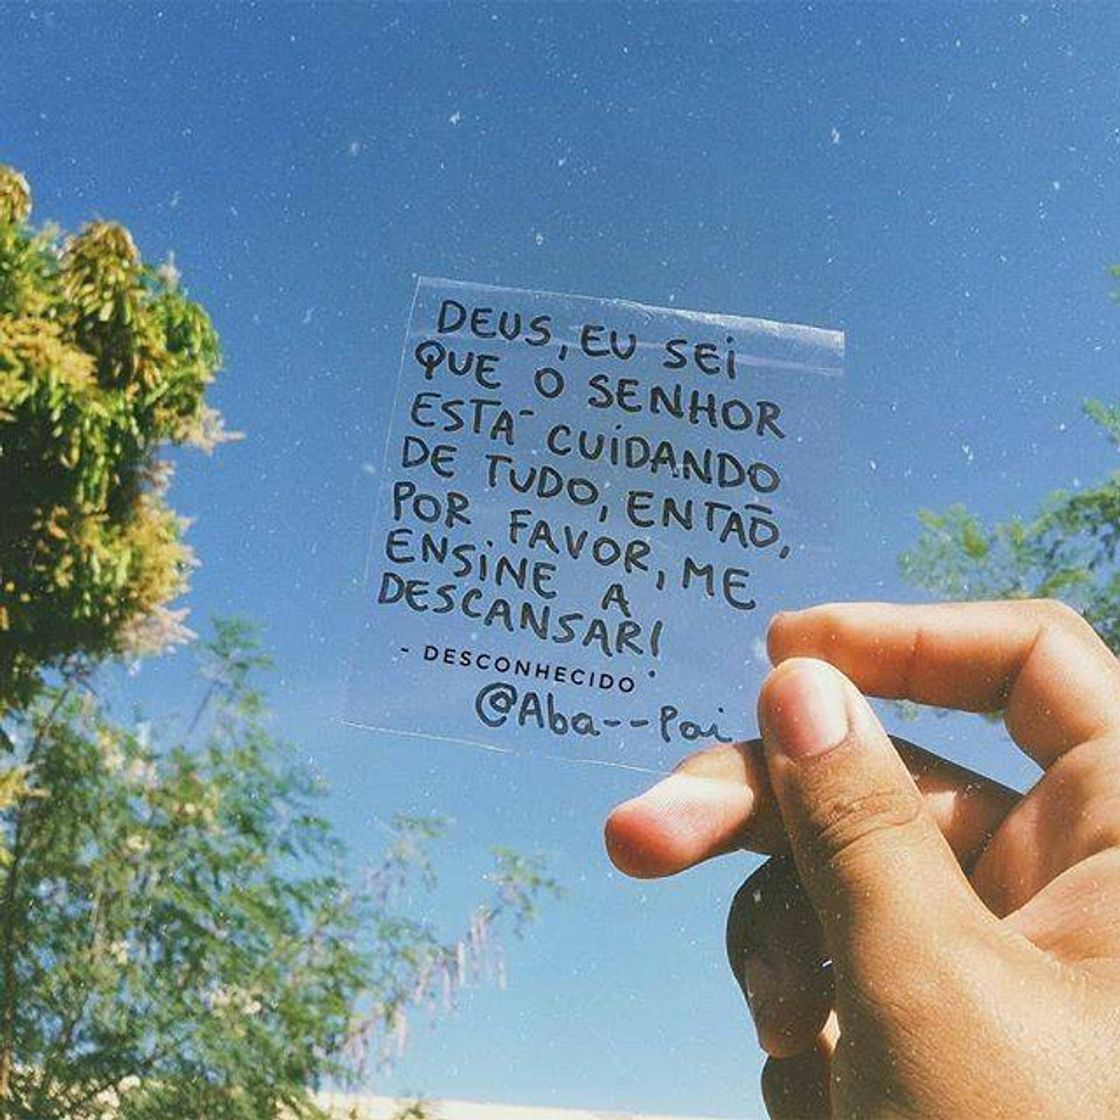 DEUS, EU SEI
QUE O SENHOR
ESTÁ CUIDANDO
DE TUDO, ENTÃO,
POR FAVOR, ME
ENSINE A
DESCANSAR!
- DESCONHECIDO
@Aba--Pai